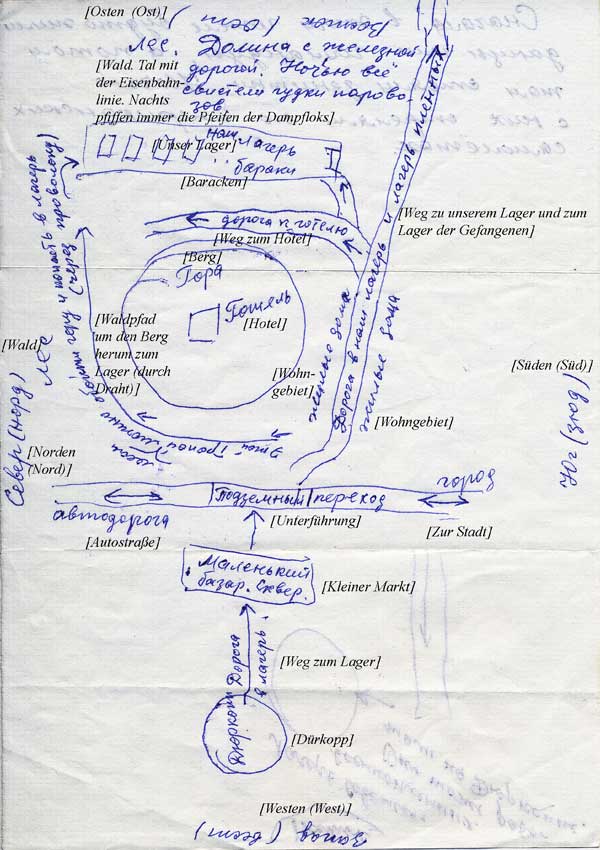 [Osten (Ost)]
Восток (Ост)
Лес. Долина с железной
дорогой. Ночью всё
свистели гудки парово-
зов
[Wald. Tal mit
der Eisenbahn-
linie. Nachts
pfiffen immer die Pfeifen der Dampfloks]
наш лагерь
[Unser Lager]
бараки
[Baracken]
дорога к готелю
[Weg zum Hotel]
[Weg zu unserem Lager und zum
Lager der Gefangenen]
Дорога в наш лагерь и лагерь пленных
[Berg]
Гора
Готель
[Hotel]
[Waldpfad
um den Berg
herum zum
Lager (durch
Draht)]
Этой тропой
лесом
обойти гору и попасть в лагерь
(через проволоку)
[Wald]
лес
[Wohn-
gebiet]
жилые дома
жилые дома
[Wohngebiet]
[Süden (Süd)]
Юг (зюд)
[Norden
(Nord)]
Север (норд)
подземный переход
город
автодорога
[Unterführung]
[Autostraße]
[Zur Stadt]
Маленький
базар. Сквер.
[Kleiner Markt]
Дорога
в лагерь.
[Weg zum Lager]
Дюркоп
[Dürkopp]
[Westen (West)]
Запад (вест)